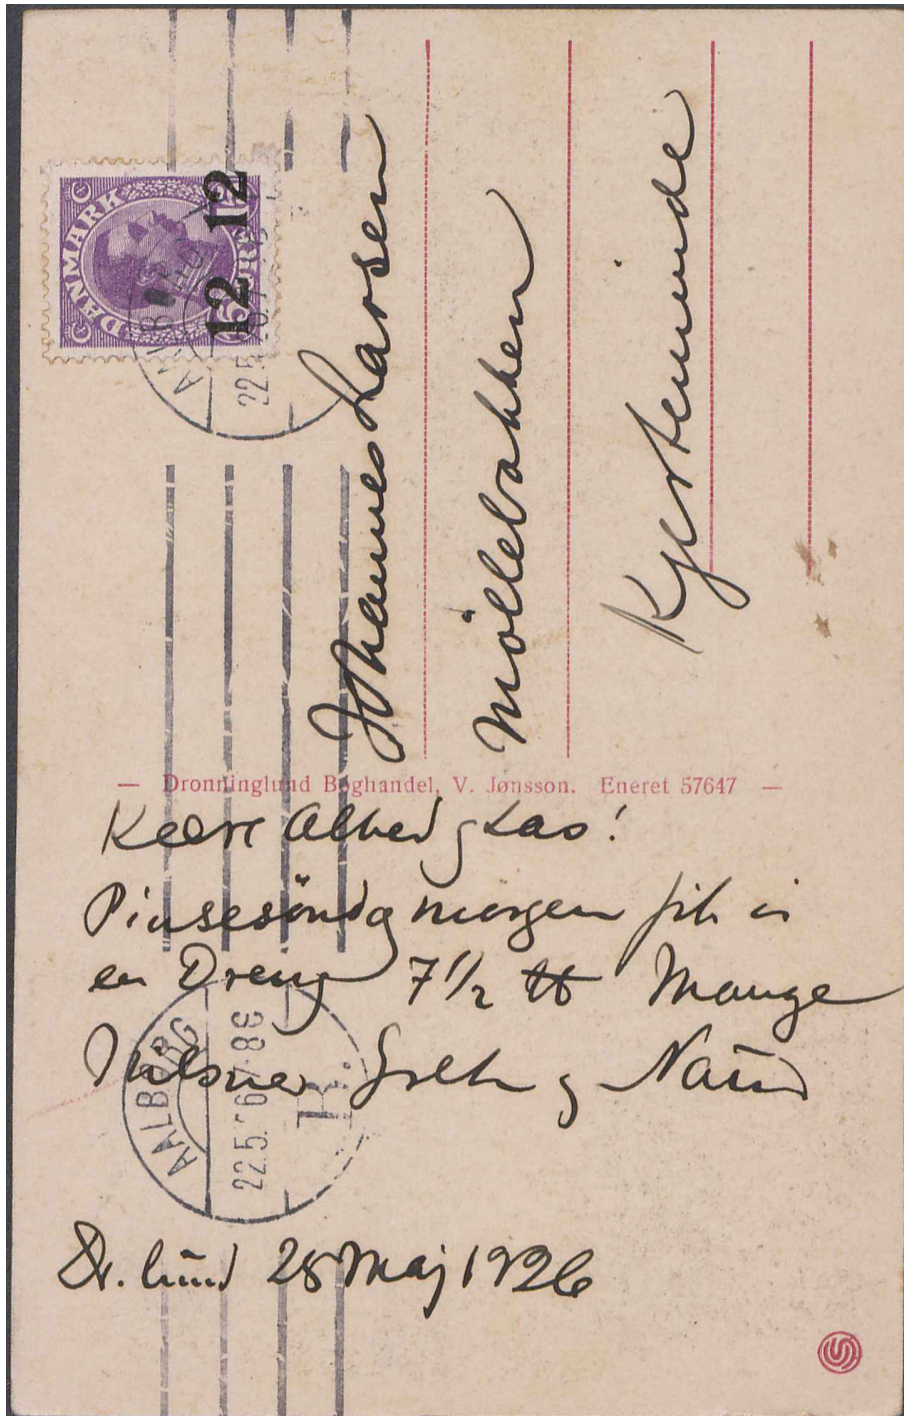 DANMARK
15 ØRE 15
12 12
AALBORG
22.5.
Johannes Larsen
Möllebakken
Kjerteminde
— Dronninglund Boghandel, V. Jønsson. Eneret 57647 —
Kære Alhed og Las!
Pinsesöndag morgen fik vi
en Dreng 7½ ℔ Mange
Hilsner Grethe og Naur
AALBORG
22.5.26 7-8
B.
Dr. lund 25 Maj 1926